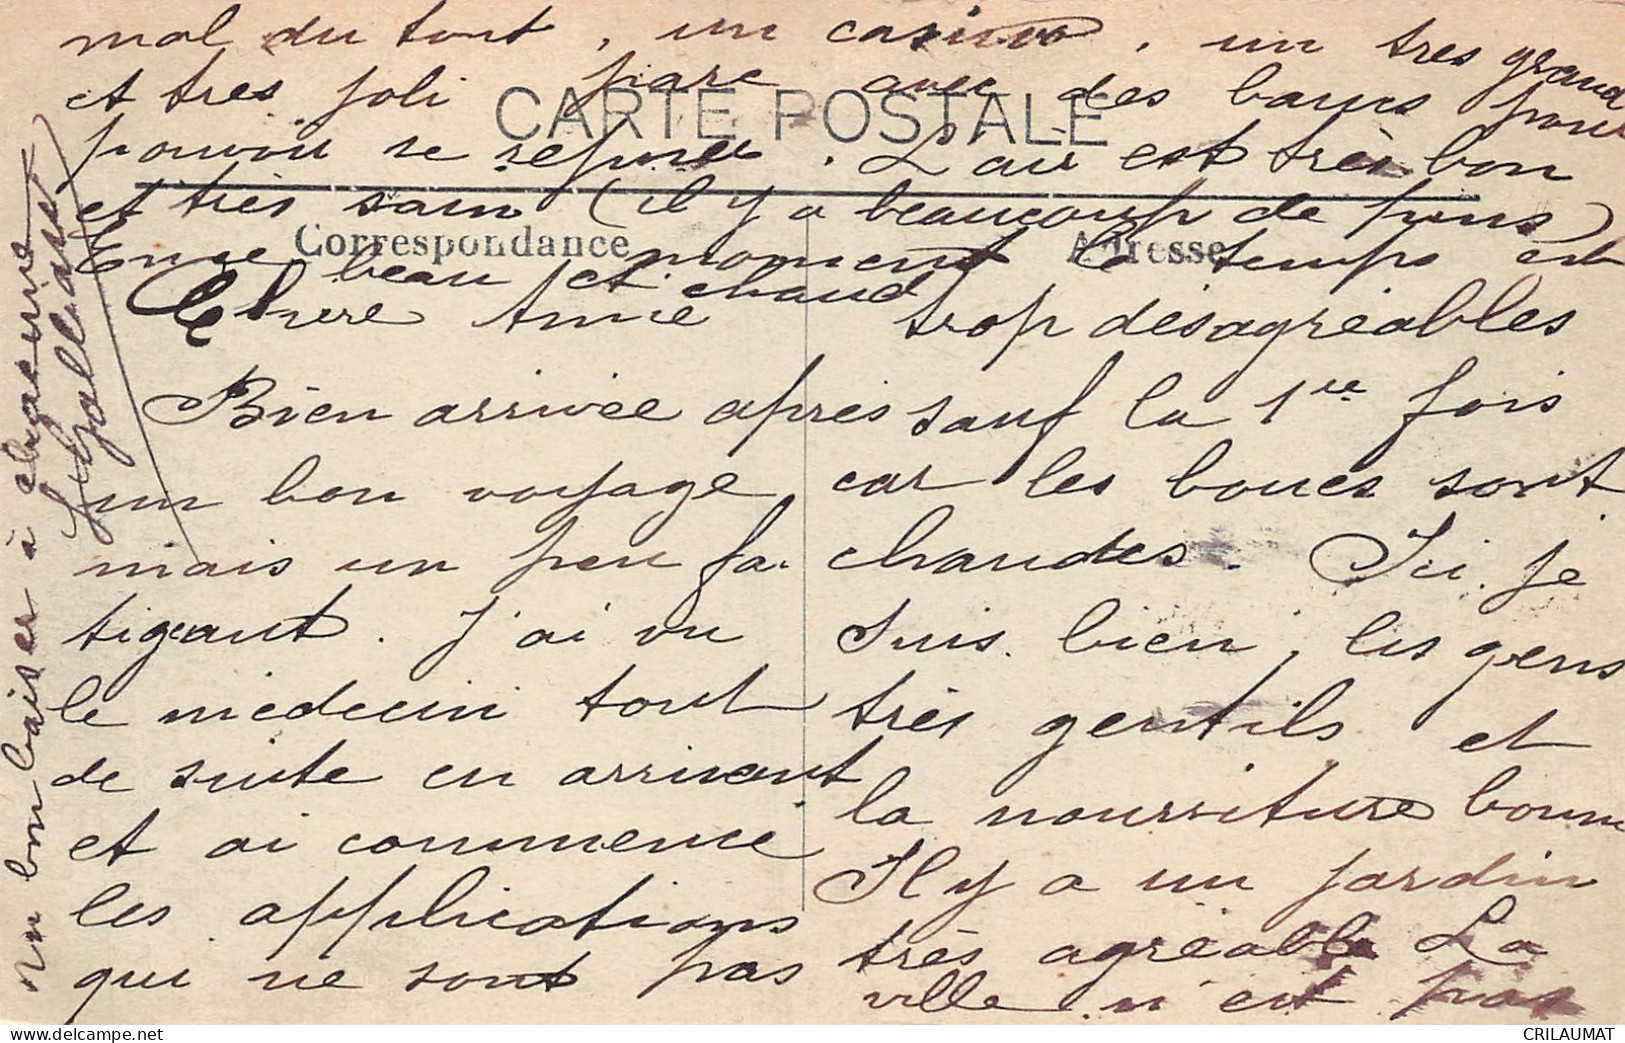 CARTE POSTALE
Correspondance
Adresse
Chère Amie
Bien arrivée après
un bon voyage
mais un peu fa-
tigant. J'ai vu
le médecin tout
de suite en arrivant
et ai commencé
les applications
qui ne sont pas
trop désagréables
sauf la 1re fois
car les boues sont
chaudes. Ici je
suis bien, les gens
très gentils et
la nourriture bonne
Il y a un jardin
très agréable La
ville n'est pas
mal du tout, un casino, un très grand
et très joli parc avec des bancs pour
pouvoir se reposer. L'air est très bon
et très sain (il y a beaucoup de pins)
En ce moment le temps est
beau et chaud
un bon baiser à chacune